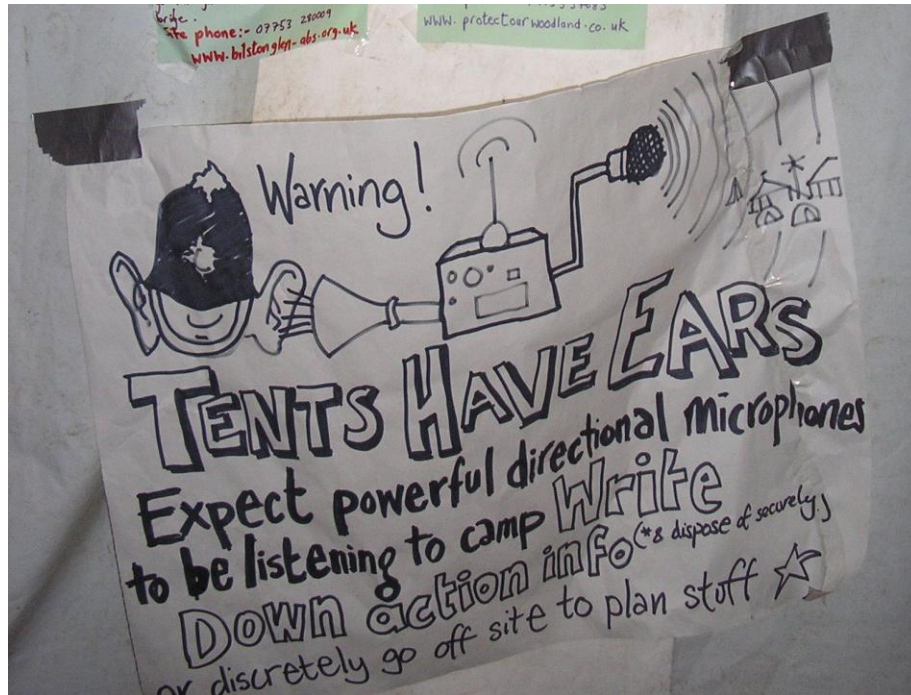 Site phone:- 07753 280009
www.bilstonglen-abs.org.uk
www.protectourwoodland.co.uk
Warning!
TENTS HAVE EARS
Expect powerful directional microphones
to be listening to camp Write
Down action info (*& dispose of securely.)
or discretely go off site to plan stuff